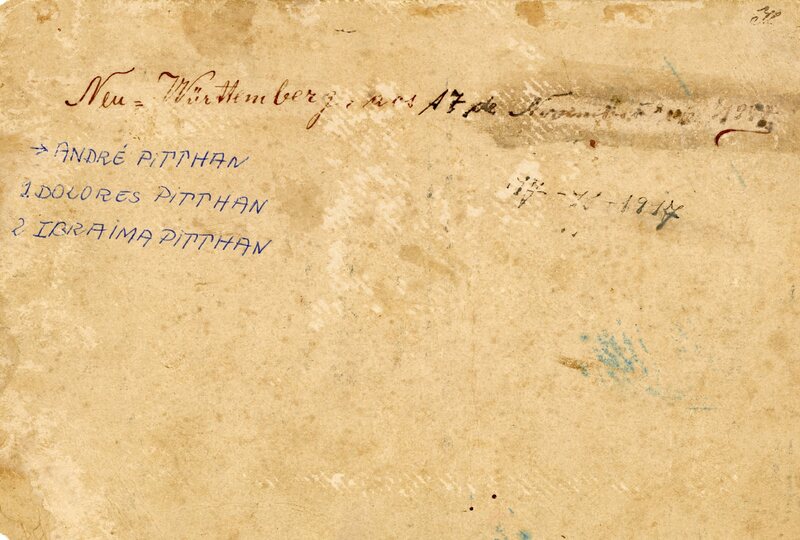 Neu=Württemberg, aos 17 de Novembro de 1917
→ ANDRÉ PITTHAN
1. DOLORES PITTHAN
17-11-1917
2. IBRAIMA PITTHAN